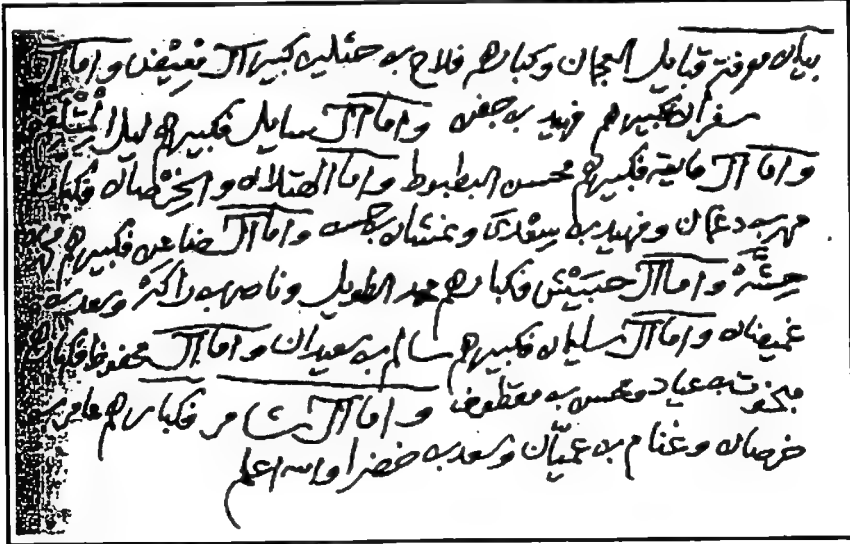 بيان معرفة قبايل العجمان وكبارهم فلاح بن حثلين كبير آل معيض واما آل
سفران فكبيرهم فهيد بن جفن واما آل سايل فكبيرهم
واما آل فكبيرهم محسن البطبوط واما الهتلان والخرصان فكبارهم
مهر بن دغمان وفهيد بن سعدى وغنشان بن واما آل ضاعن فكبيرهم
واما آل حبيش فكبارهم محمد الطويل وناصر بن راكة وسعد بن
غميضان واما آل سليمان فكبيرهم سالم بن سعيدان واما آل محفوظ فكبارهم
بن عياد ومحسن بن معطوف واما آل شامر فكبارهم عامر بن
خرصان وغنام بن عميان وسعد بن خضرا والله اعلم